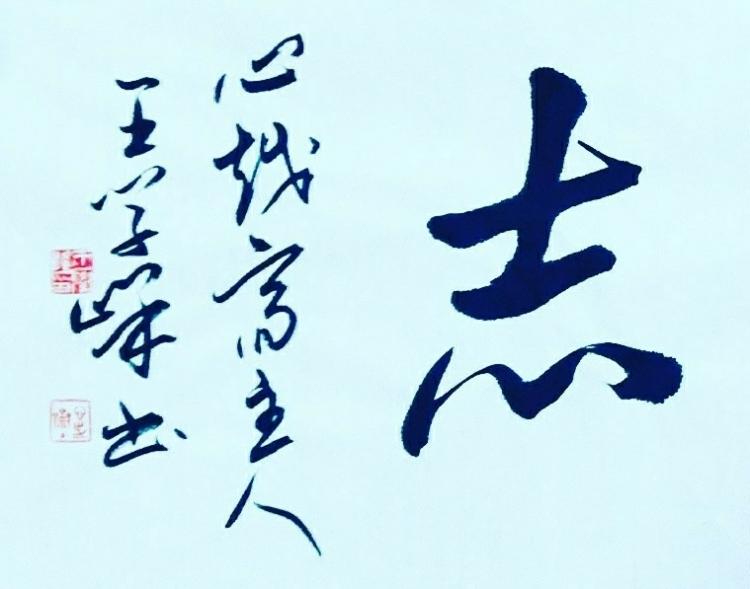 志
心越斋主人
王学峰书